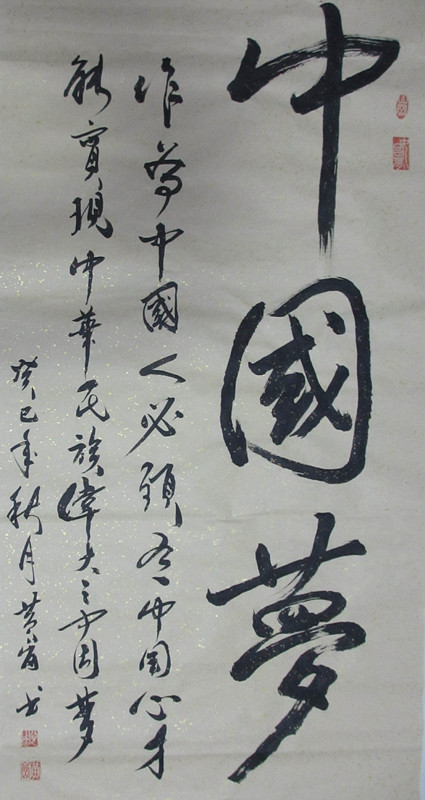 中國夢
作為中國人必須有中国心才
能實現中華民族偉大之中国夢
癸巳年秋月黄 书